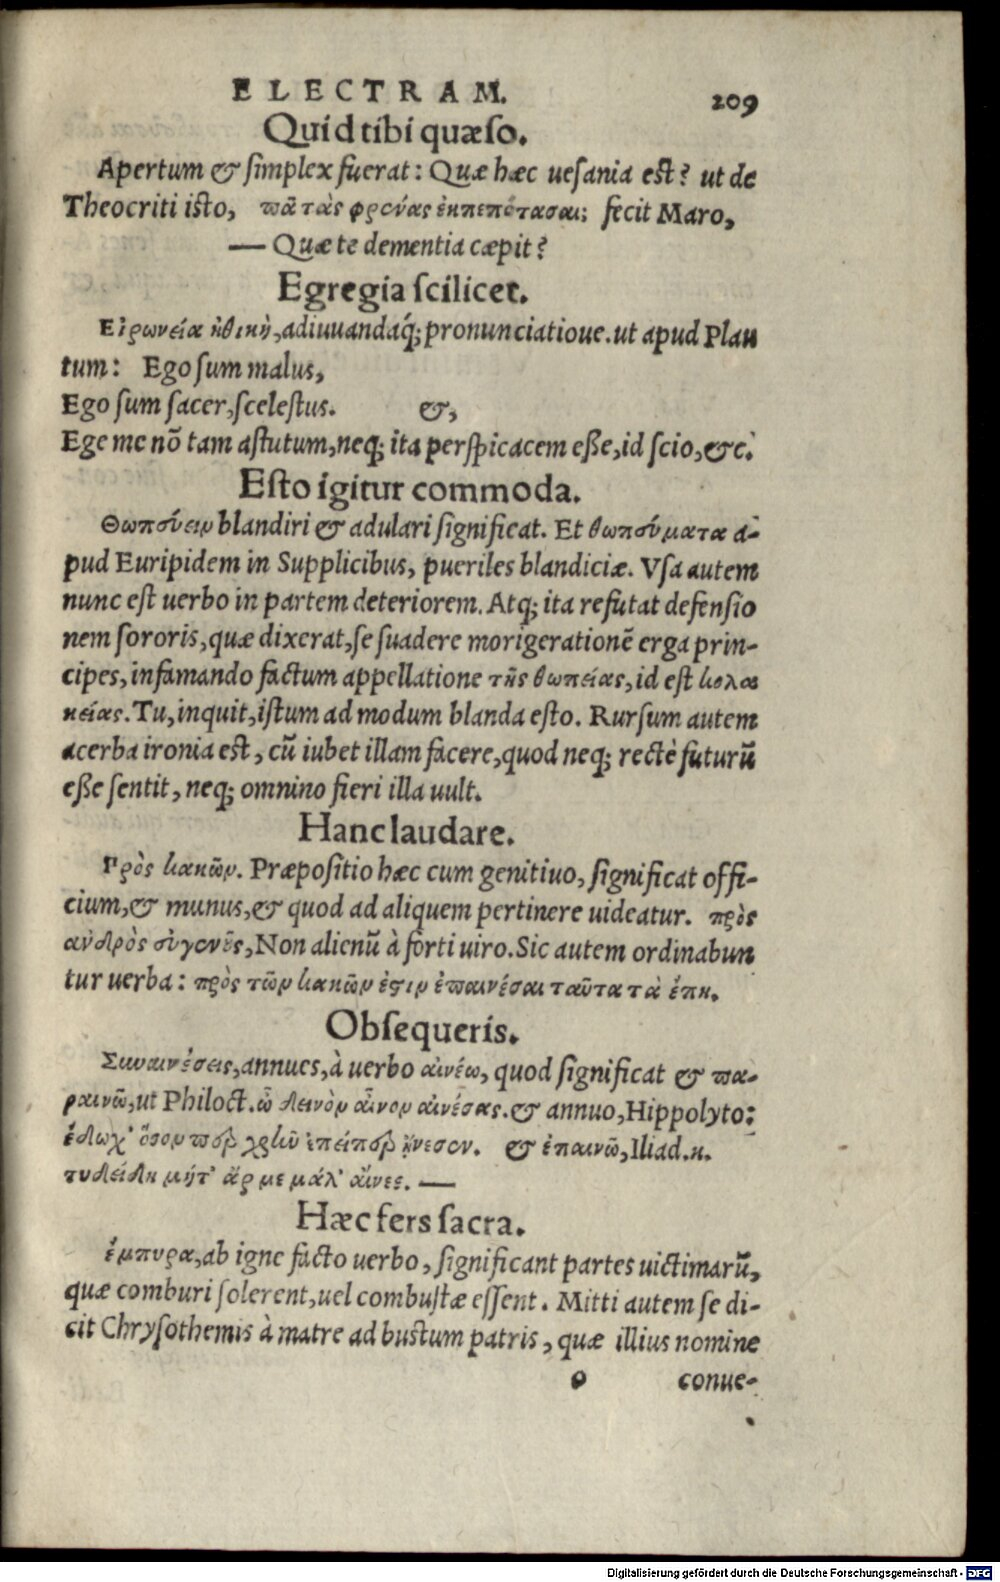 ELECTRAM.
209
Quid tibi quæso.
Apertum & simplex fuerat: Quæ hæc uesania est? ut de
Theocriti isto, πᾶ τὰς φρένας ἐκπεπότασαι; fecit Maro,
— Quæ te dementia cæpit?
Egregia scilicet.
Εἰρωνεία ἠθικὴ, adiuuandaq́; pronunciatioue. ut apud Plau
tum: Ego sum malus,
Ego sum sacer, scelestus. &,
Ege me nō tam astutum, neq; ita perspicacem eße, id scio, &c.
Esto igitur commoda.
Θωπεύειν blandiri & adulari significat. Et θωπεύματα a-
pud Euripidem in Supplicibus, pueriles blandiciæ. Vsa autem
nunc est uerbo in partem deteriorem. Atq; ita refutat defensio
nem sororis, quæ dixerat, se suadere morigerationē erga prin-
cipes, infamando factum appellatione τῆς θωπείας, id est κολα
κείας. Tu, inquit, istum ad modum blanda esto. Rursum autem
acerba ironia est, cū iubet illam facere, quod neq; rectè futurū
eße sentit, neq; omnino fieri illa uult.
Hanc laudare.
Πρὸς κακῶν. Præpositio hæc cum genitiuo, significat offi-
cium, & munus, & quod ad aliquem pertinere uideatur. πρὸς
ἀνδρὸς εὐγενοῦς, Non alienū à forti uiro. Sic autem ordinabun
tur uerba: πρὸς τῶν κακῶν ἐστιν ἐπαινέσαι ταῦτα τὰ ἔπη.
Obsequeris.
Συναινέσεις, annues, à uerbo αἰνέω, quod significat & πα-
ραινῶ, ut Philoct. ὦ δεινὸν αἶνον αἰνέσας. & annuo, Hippolyto:
ἔδωχ' ὅσον περ χρῆν ἐπείπερ ᾔνεσεν. & ἐπαινῶ, Iliad. κ.
τυδείδη μήτ' ἄρ με μάλ' αἴνεε. —
Hæc fers sacra.
ἔμπυρα, ab igne facto uerbo, significant partes uictimarū,
quæ comburi solerent, uel combustæ essent. Mitti autem se di-
cit Chrysothemis à matre ad bustum patris, quæ illius nomine
o conue-
Digitalisierung gefördert durch die Deutsche Forschungsgemeinschaft - DFG